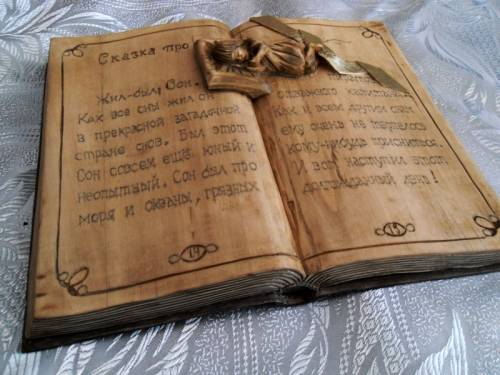 Сказка про
Жил-был Сон.
Как все сны жил он
в прекрасной загадочной
стране снов. Был этот
Сон совсем ещё юный и
неопытный. Сон был про
моря и океаны, грязных
14
отважного капитана.
Как и всем другим снам
ему очень не терпелось
кому-нибудь присниться.
И вот наступил этот
долгожданный день!
15